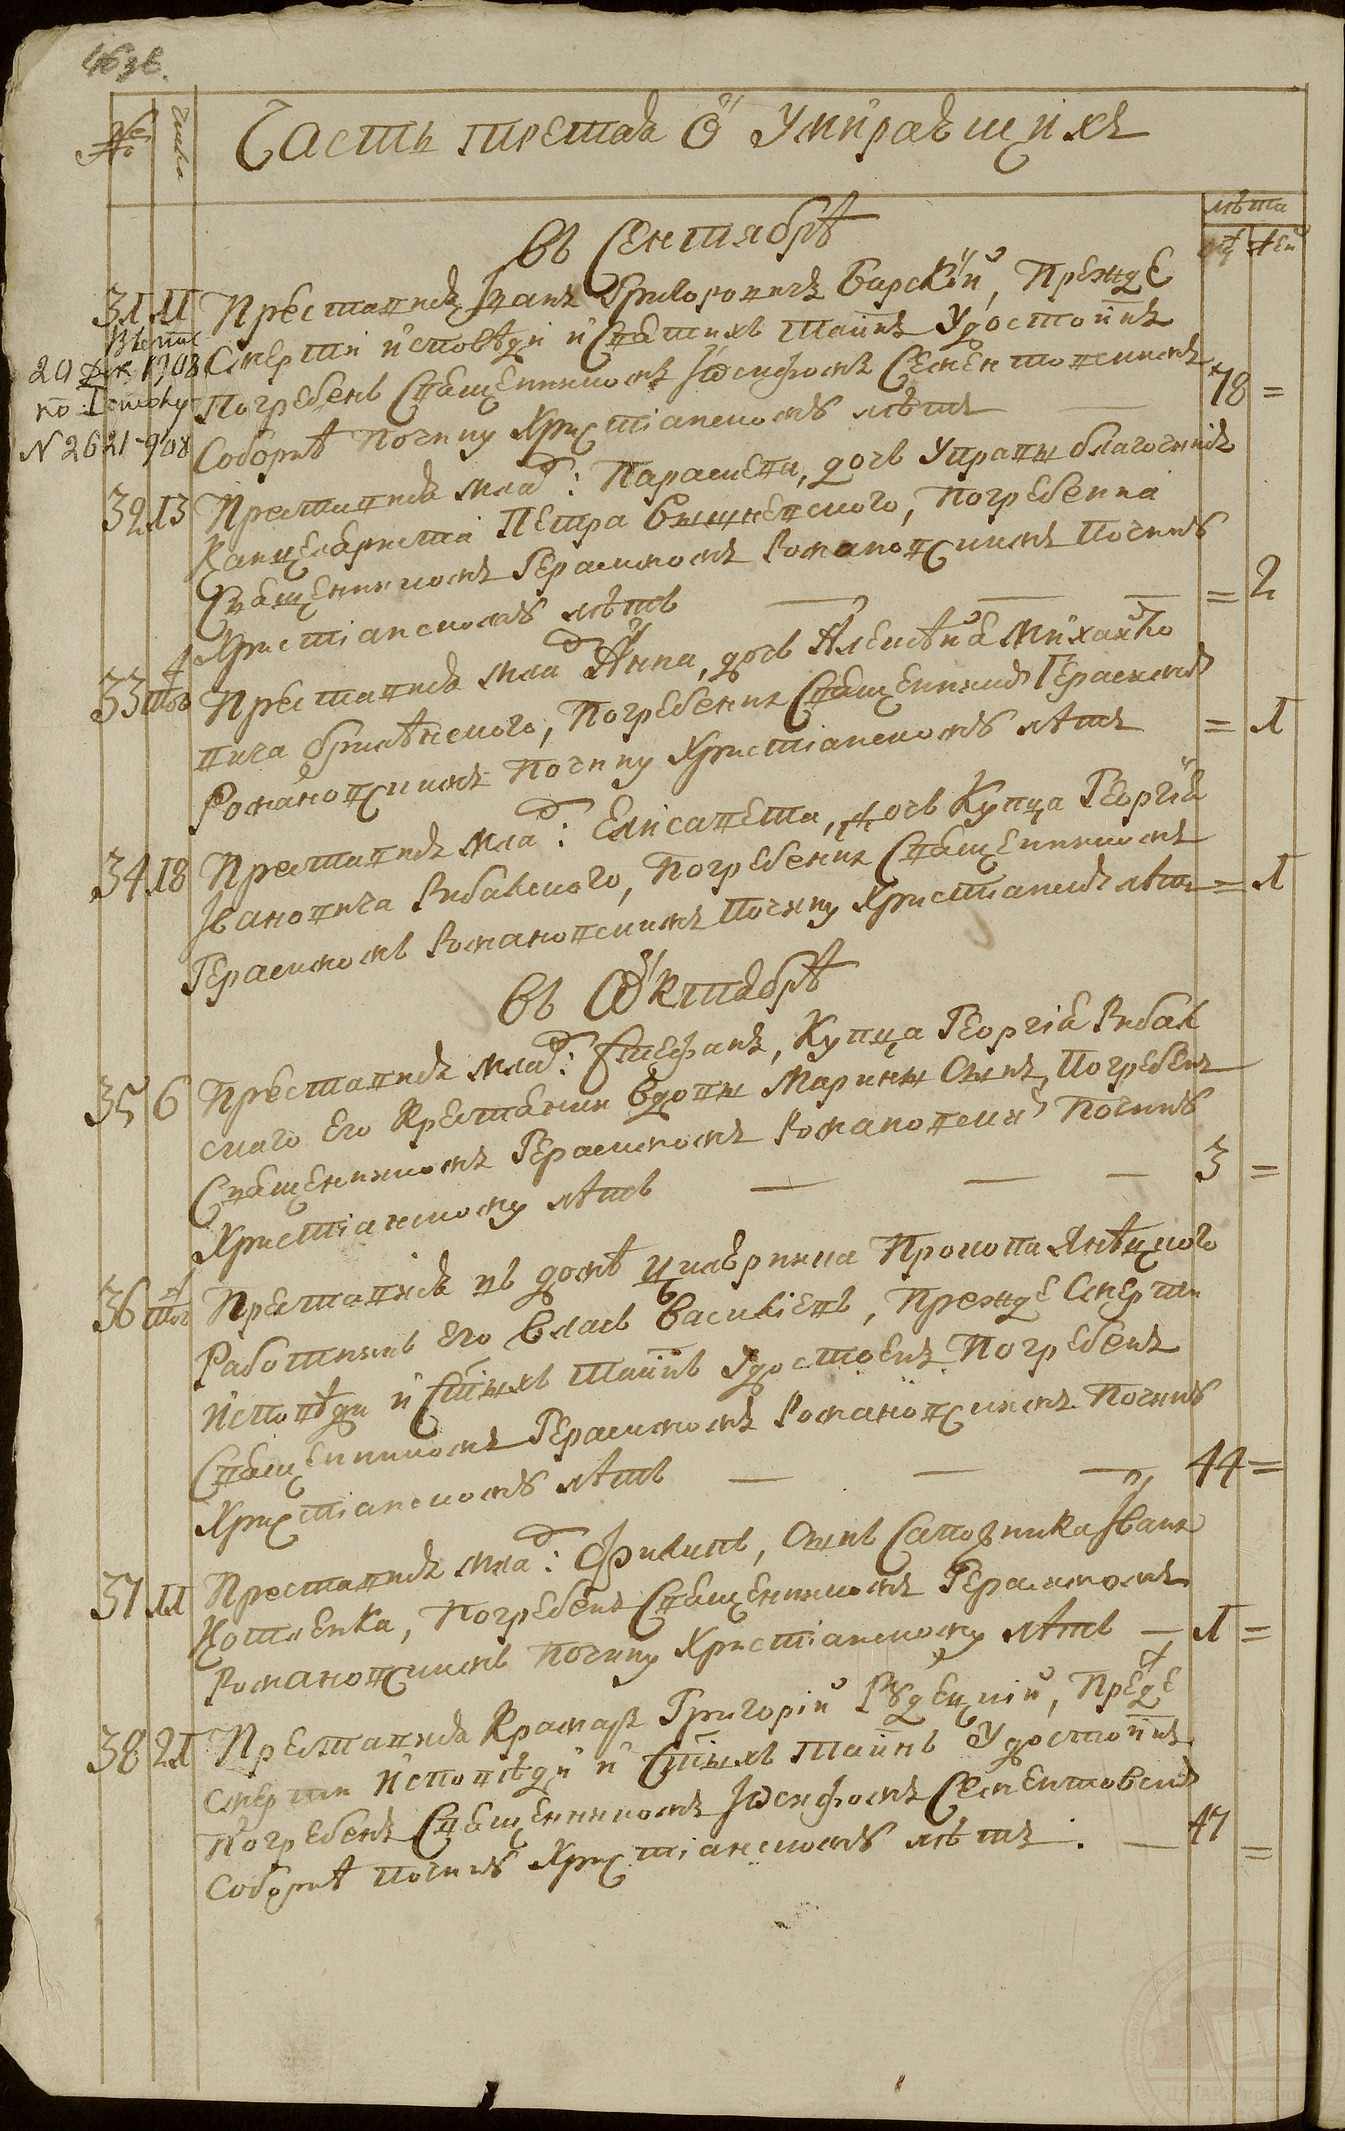 №
Число
Часть третаѧ Ѿ Умирающихъ
лѣта
мѵ҃ж жен
въ Сентябрѣ
31 11 Преставися Іванъ Григоровичъ Барскій, Прежде
Смерти исповѣди и Святихъ таинъ Удостоинъ
Погребенъ Священникомъ Іѡсифомъ Сементовскимъ
Соборнѣ Почину Христіанскомꙋ лѣтъ — 78 =
Выпис
20 дек 1908
по
N 2621-908
32 13 Преставися млад: Параскева, дочь Управы благочинія
Канцеляриста Петра Вишневского, Погребенна
Священникомъ Герасимомъ Романовскимъ Починꙋ
Христіанскомꙋ лѣтъ — — — = 2
33 того Преставися млад Анна, дочь Алексѣя Михайло
вича Погребенна Священникомъ Герасимом
Романовскимъ Почину Христіанскомꙋ лѣтъ = 1
34 18 Преставися млад: Елисавета, дочь Купца Георгія
Івановича Рибалского, Погребенна Священникомъ
Герасимомъ Романовскимъ Почину Христіанском лѣтъ = 1
въ Ѡктябрѣ
35 6 Преставися млад: Стефанъ, Купца Георгія Рибал
скаго его Крестянки вдовы Марины Сынъ, Погребенъ
Священникомъ Герасимомъ Романовским Починꙋ
Христіанскому лѣтъ — — — 3 =
36 того Преставися въ домѣ Прокопа
Работникъ его Власъ Василіевъ, Прежде Смерти
Исповѣди и Стыхъ Таинъ Удостоенъ Погребенъ
Священникомъ Герасимомъ Романовскимъ Починꙋ
Христіанскомꙋ лѣтъ — — — 44 =
37 11 Преставися млад: Филипъ, Сынъ Сапожника Івана
Котленка, Погребенъ Священникомъ Герасимомъ
Романовскимъ Почину Христіанскому лѣтъ — 1 =
38 21 Преставися Крамар Григорій Рꙋдецкій, Преде
смерти Исповѣди и Стыхъ таинъ Удостоинъ
Погребенъ Священникомъ Іѡсифомъ Сементовским
Соборнѣ починꙋ Христіанскомꙋ лѣтъ . — 47 =